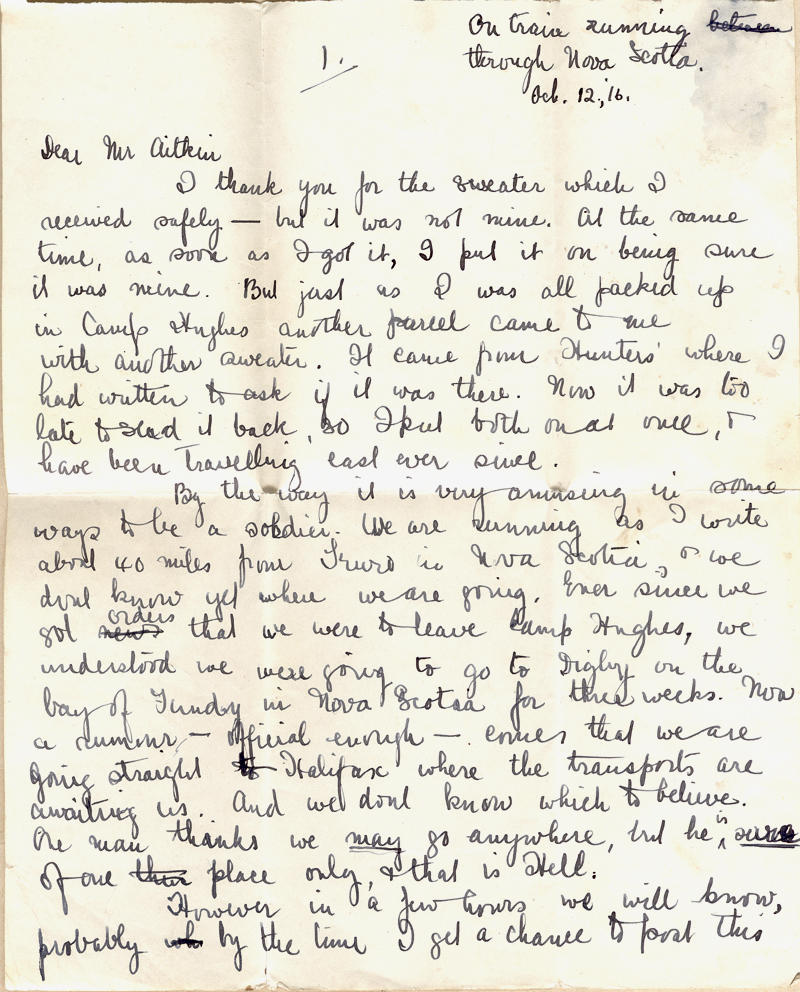 On train running between
through Nova Scotia.
1.
Oct. 12, '16.
Dear Mr Aitkin
I thank you for the sweater which I
received safely — but it was not mine. At the same
time, as soon as I got it, I put it on being sure
it was mine. But just as I was all packed up
in Camp Hughes another parcel came to me
with another sweater. It came from Hunters' where I
had written to ask if it was there. Now it was too
late to send it back, so I put both on at once, &
have been travelling east ever since.
By the way it is very amusing in some
ways to be a soldier. We are running as I write
about 40 miles from Truro in Nova Scotia, & we
dont know yet where we are going. Ever since we
got news orders that we were to leave Camp Hughes, we
understood we were going to go to Digby on the
bay of Fundy in Nova Scotia for three weeks. Now
a rumour, — official enough — comes that we are
going straight to Halifax where the transports are
awaiting us. And we dont know which to believe.
One man thanks we may go anywhere, but he is sure
of one place only, & that is Hell.
However in a few hours we will know,
probably by the time I get a chance to post this